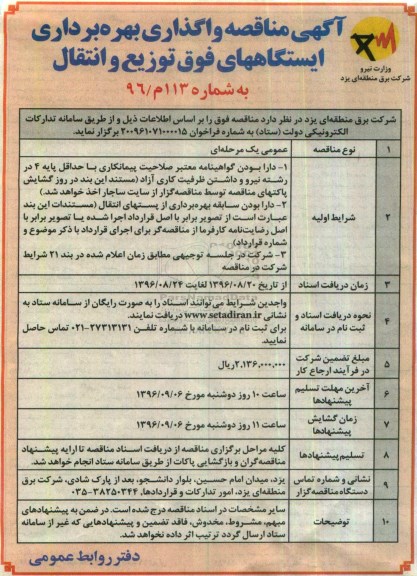 آگهی مناقصه واگذاری بهره برداری
ایستگاههای فوق توزیع و انتقال
به شماره ۱۱۳م/۹۶
وزارت نیرو
شرکت برق منطقه‌ای یزد
شرکت برق منطقه‌ای یزد در نظر دارد مناقصه فوق را بر اساس اطلاعات ذیل و از طریق سامانه تدارکات
الکترونیکی دولت (ستاد) به شماره فراخوان ۲۰۰۹۶۱۰۷۱۰۰۰۰۱۵ برگزار نماید.
۱ نوع مناقصه عمومی یک مرحله‌ای
۲ شرایط اولیه
۱- دارا بودن گواهینامه معتبر صلاحیت پیمانکاری با حداقل پایه ۴ در
رشته نیرو و داشتن ظرفیت کاری آزاد (مستند این بند در روز گشایش
پاکتهای مناقصه توسط مناقصه‌گزار از سایت ساجار اخذ خواهد شد.)
۲- دارا بودن سابقه بهره‌برداری از پستهای انتقال (مستندات این بند
عبارت است از تصویر برابر با اصل قرارداد اجرا شده یا تصویر برابر با
اصل رضایت‌نامه کارفرما از مناقصه‌گر برای اجرای قرارداد با ذکر موضوع و
شماره قرارداد)
۳- شرکت در جلسه توجیهی مطابق زمان اعلام شده در بند ۲۱ شرایط
شرکت در مناقصه
۳ زمان دریافت اسناد از تاریخ ۱۳۹۶/۰۸/۲۰ لغایت ۱۳۹۶/۰۸/۲۴
۴ نحوه دریافت اسناد و
ثبت نام در سامانه
واجدین شرایط می‌توانند اسناد را به صورت رایگان از سامانه ستاد به
نشانی www.setadiran.ir دریافت نمایند.
برای ثبت نام در سامانه با شماره تلفن ۲۷۳۱۳۱۳۱-۰۲۱ تماس حاصل
نمایید.
۵ مبلغ تضمین شرکت
در فرآیند ارجاع کار
۲,۱۳۶,۰۰۰,۰۰۰ریال
۶ آخرین مهلت تسلیم
پیشنهادها
ساعت ۱۰ روز دوشنبه مورخ ۱۳۹۶/۰۹/۰۶
۷ زمان گشایش
پیشنهادها
ساعت ۱۱ روز دوشنبه مورخ ۱۳۹۶/۰۹/۰۶
۸ تسلیم‌پیشنهادها
کلیه مراحل برگزاری مناقصه از دریافت اسناد مناقصه تا ارایه پیشنهاد
مناقصه‌گران و بازگشایی پاکات از طریق سامانه ستاد انجام خواهد شد.
۹ نشانی و شماره تماس
دستگاه مناقصه‌گزار
یزد، میدان امام حسین، بلوار دانشجو، بعد از پارک شادی، شرکت برق
منطقه‌ای یزد، امور تدارکات و قراردادها، ۳۸۲۵۰۳۴۴-۰۳۵
۱۰ توضیحات
سایر مشخصات در اسناد مناقصه درج شده است. در ضمن به پیشنهادهای
مبهم، مشروط، مخدوش، فاقد تضمین و پیشنهادهایی که غیر از سامانه
ستاد ارسال گردد ترتیب اثر داده نخواهد شد.
دفتر روابط عمومی